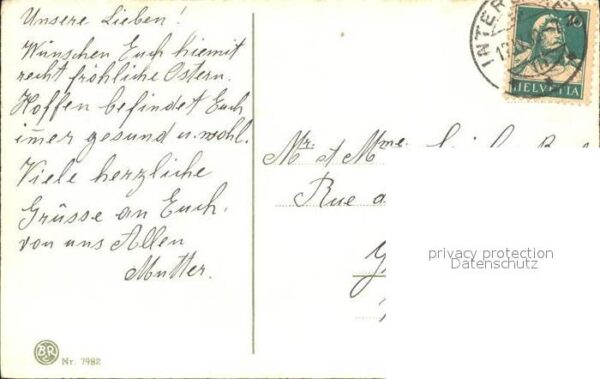 Unsere Lieben!
Wünschen Euch hiemit
recht fröhliche Ostern.
Hoffen befindet Euch
im̄er gesund u. wohl.
Viele herzliche
Grüsse an Euch.
von uns Allen
Mutter.
BR
Nr. 7982
INTER
HELVETIA
Mr. et Mme.
Rue
privacy protection
Datenschutz